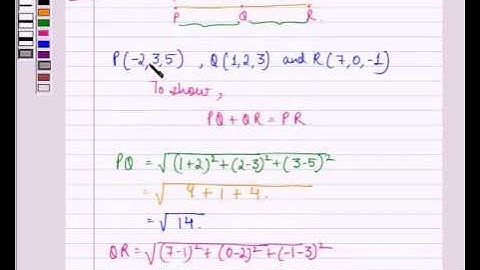 P Q R
P(-2,3,5) , Q(1,2,3) and R(7,0,-1)
To show,
PQ + QR = PR.
PQ = √(1+2)²+(2-3)²+(3-5)²
= √9+1+4.
= √14.
QR = √(7-1)²+(0-2)²+(-1-3)²